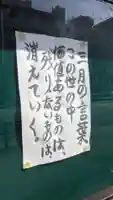 三月の言葉
この世の中
価値あるものは、
がりんないものは、
消えていく。